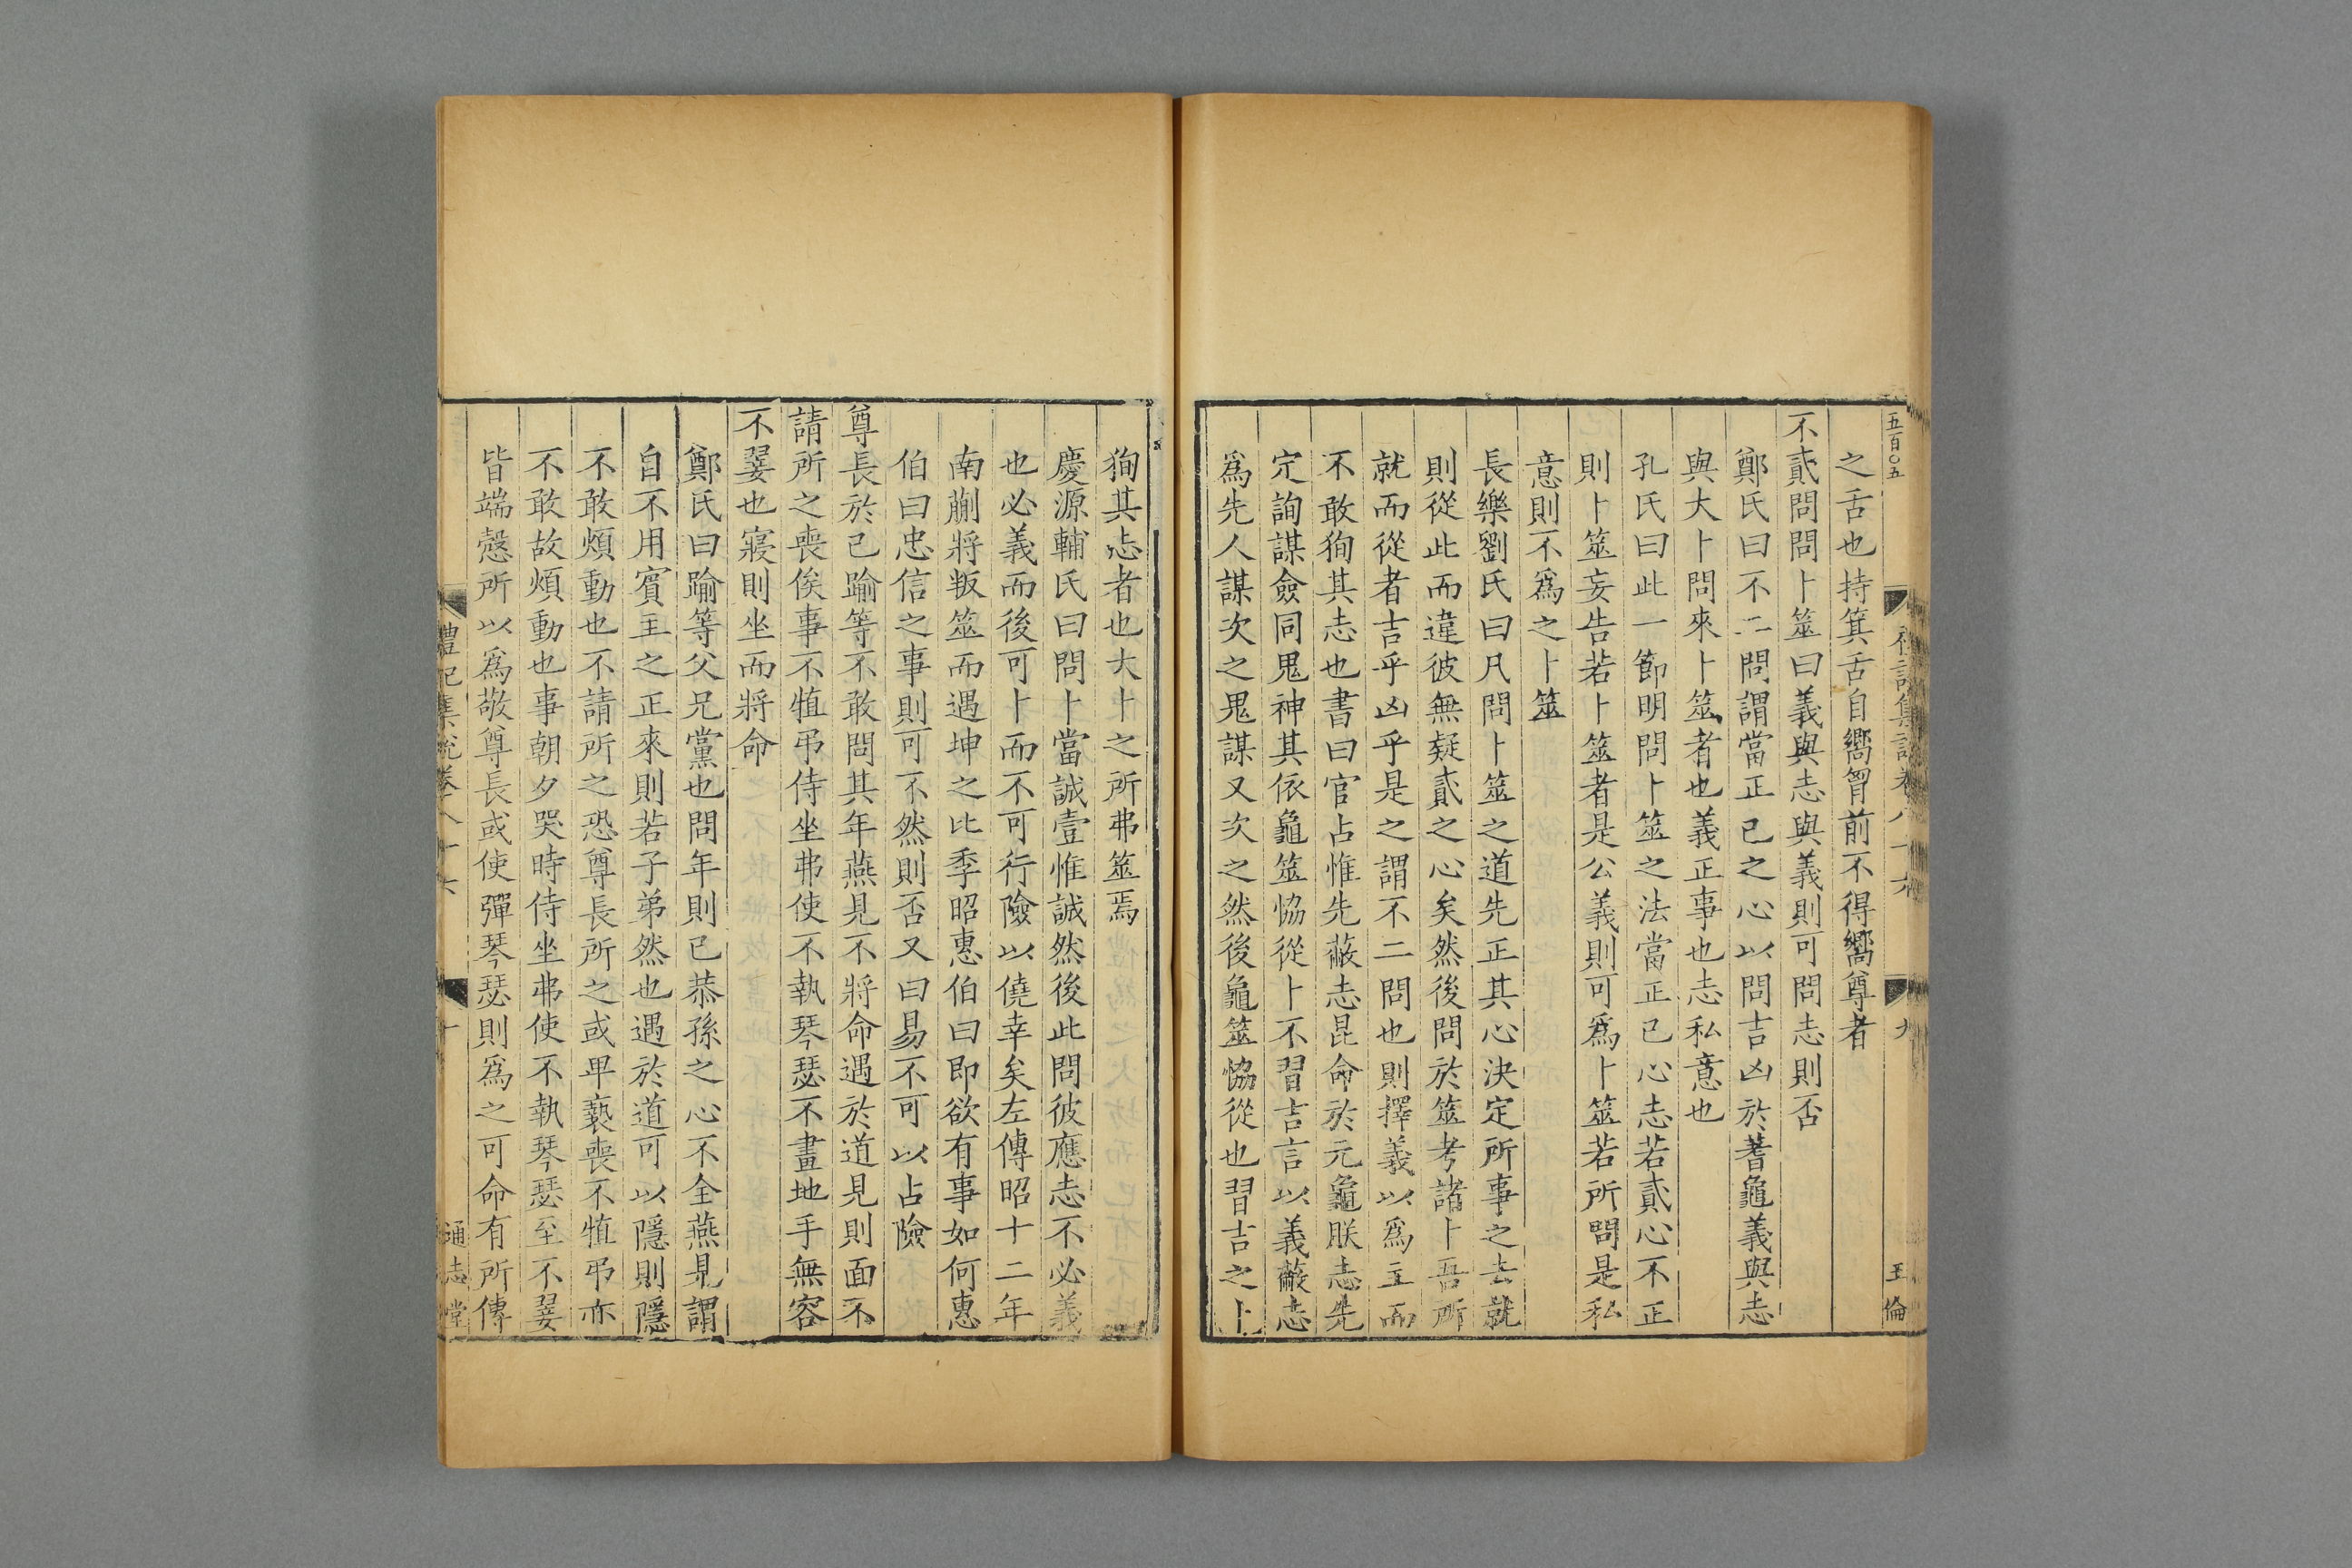 五百〇五
禮記集說卷八十六
九
王倫
之舌也持箕舌自嚮胷前不得嚮尊者
不貳問問卜筮曰義與志與義則可問志則否
鄭氏曰不二問謂當正已之心以問吉凶於蓍龜義與志
與大卜問來卜筮者也義正事也志私意也
孔氏曰此一節明問卜筮之法當正已心志若貳心不正
則卜筮妄告若卜筮者是公義則可爲卜筮若所問是私
意則不爲之卜筮
長樂劉氏曰凡問卜筮之道先正其心決定所事之去就
則從此而違彼無疑貳之心矣然後問於筮考諸卜吾所
就而從者吉乎凶乎是之謂不二問也則擇義以爲主而
不敢狥其志也書曰官占惟先蔽志昆命於元龜朕志先
定詢謀僉同鬼神其依龜筮恊從卜不習吉言以義蔽志
爲先人謀次之鬼謀又次之然後龜筮恊從也習吉之卜
狥其志者也大卜之所弗筮焉
慶源輔氏曰問卜當誠壹惟誠然後此問彼應志不必義
也必義而後可卜而不可行險以僥幸矣左傳昭十二年
南蒯將叛筮而遇坤之比季昭惠伯曰即欲有事如何惠
伯曰忠信之事則可不然則否又曰易不可以占險
尊長於已踰等不敢問其年燕見不將命遇於道見則面不
請所之喪俟事不犆弔侍坐弗使不執琴瑟不畫地手無容
不翣也寢則坐而將命
鄭氏曰踰等父兄黨也問年則已恭孫之心不全燕見謂
自不用賔主之正來則若子弟然也遇於道可以隱則隱
不敢煩動也不請所之恐尊長所之或卑褻喪不犆弔亦
不敢故煩動也事朝夕哭時侍坐弗使不執琴瑟至不翣
皆端慤所以爲敬尊長或使彈琴瑟則爲之可命有所傳
禮記集說卷八十六
十
通志堂